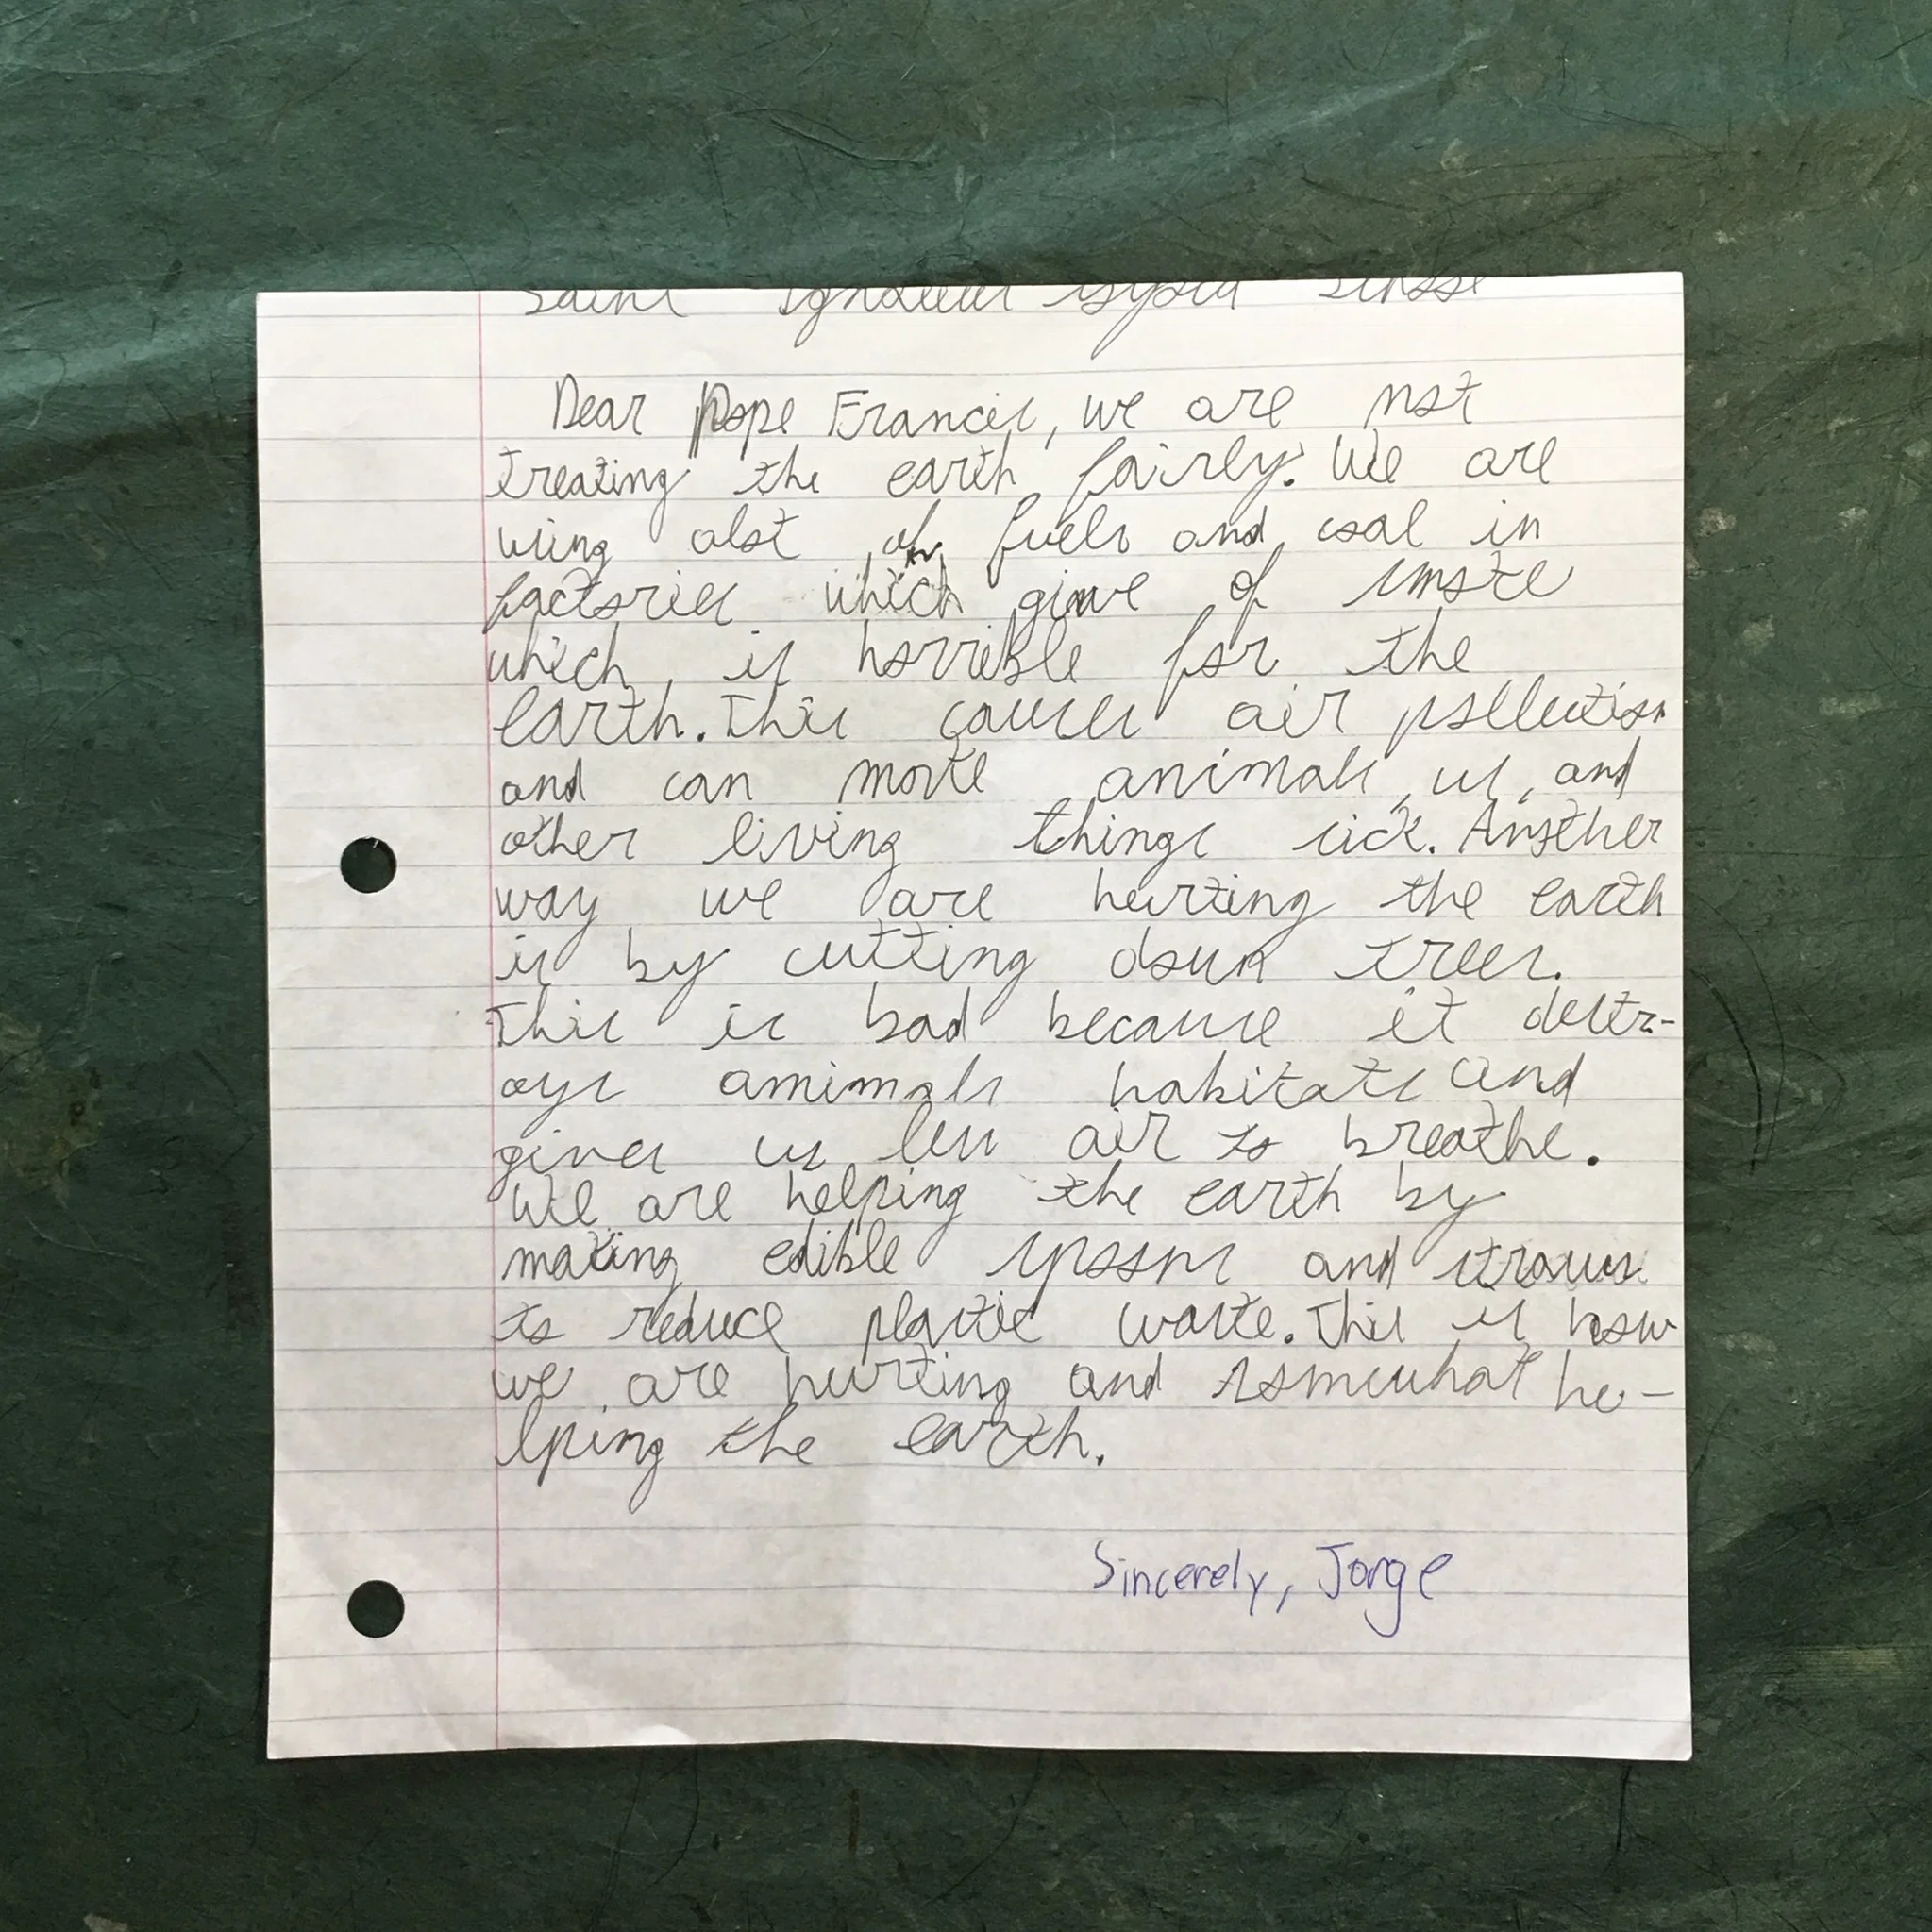 Saint Ignatius
Dear Pope Francis, we are not
treating the earth fairly. We are
using alot of fuels and coal in
factories which give of smoke
which is horrible for the
earth. This causes air pollution
and can make animals, us, and
other living things sick. Another
way we are hurting the earth
is by cutting down trees.
This is bad because it destr-
oys animals habitats and
gives us less air to breathe.
We are helping the earth by
making edible spoons and straws
to reduce plastic waste. This is how
we are hurting and somewhat he-
lping the earth.
Sincerely, Jorge